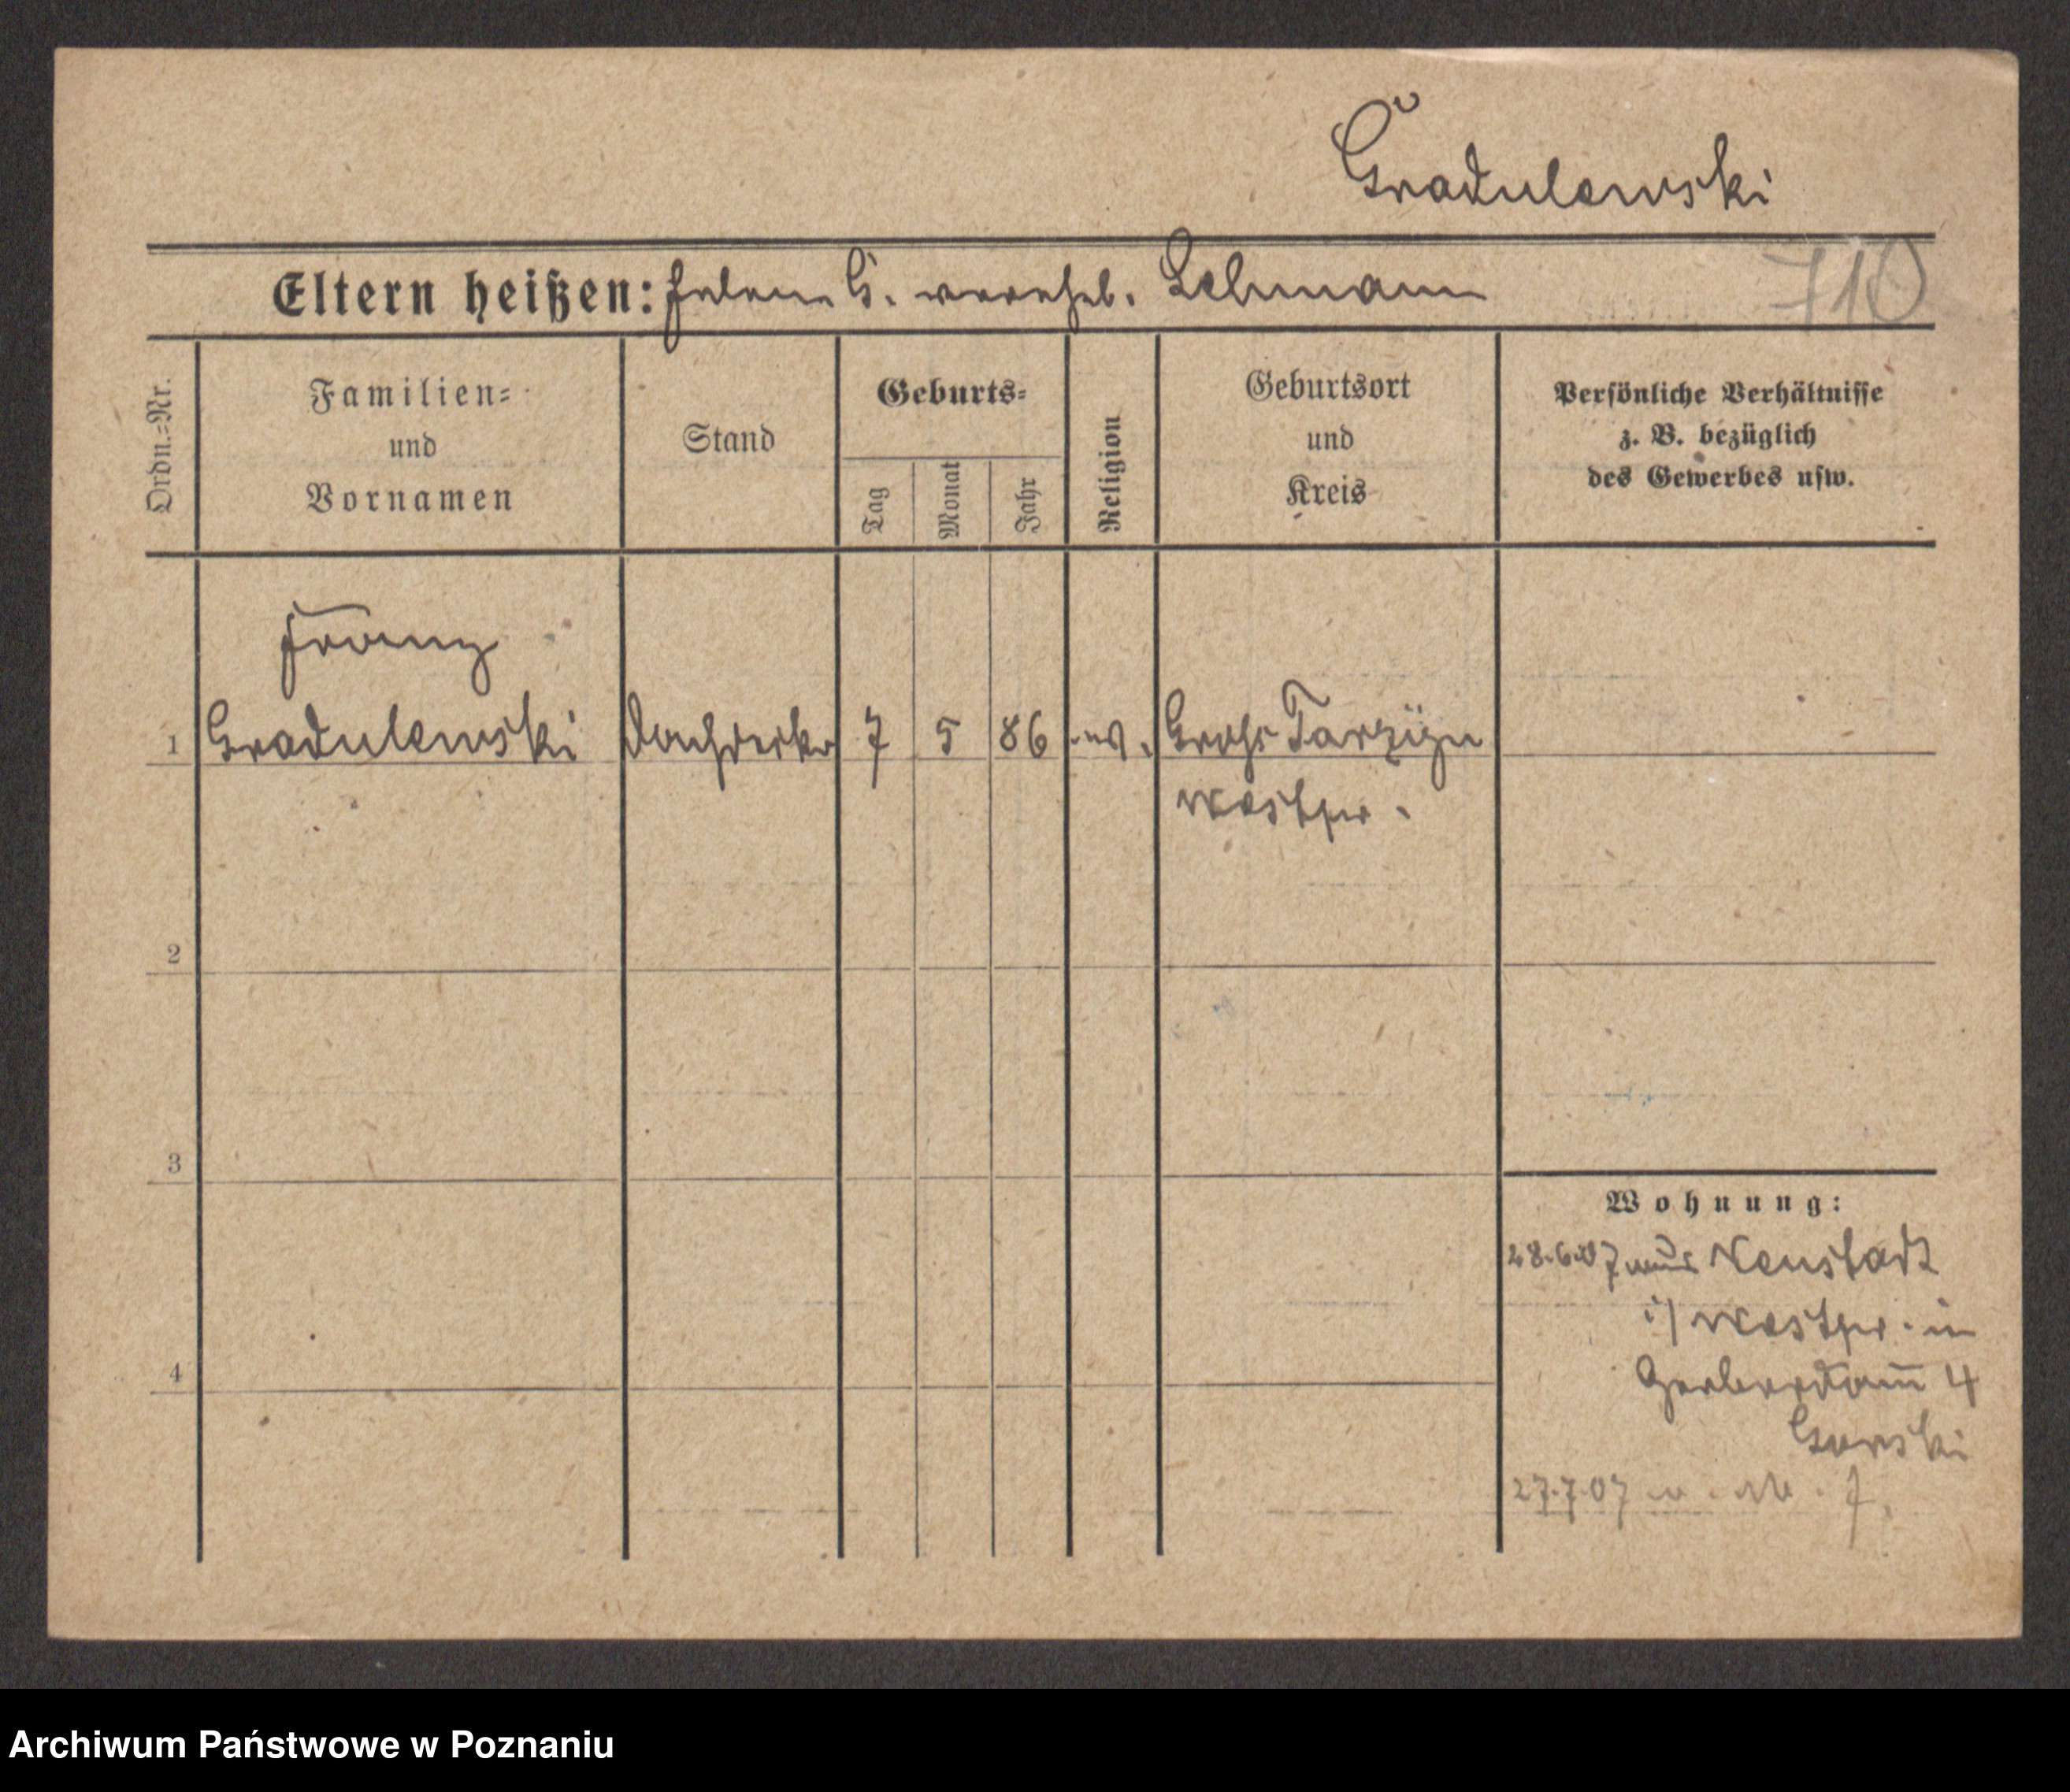 Gradulewski
Eltern heißen: Helene G. verehel. Lehmann
710
Ordn.=Nr.
Familien=
und
Vornamen
Stand
Geburts=
Tag
Monat
Jahr
Religion
Geburtsort
und
Kreis
Persönliche Verhältnisse
z. B. bezüglich
des Gewerbes usw.
Franz
1 Gradulewski Dachdecker 7 5 86 ev. Gross
Westpr.
2
3
4
Wohnung:
28.6.07 aus Neustadt
i/ Westpr. in
Gerberdam̄ 4
Gorski
27.7.07
Archiwum Państwowe w Poznaniu